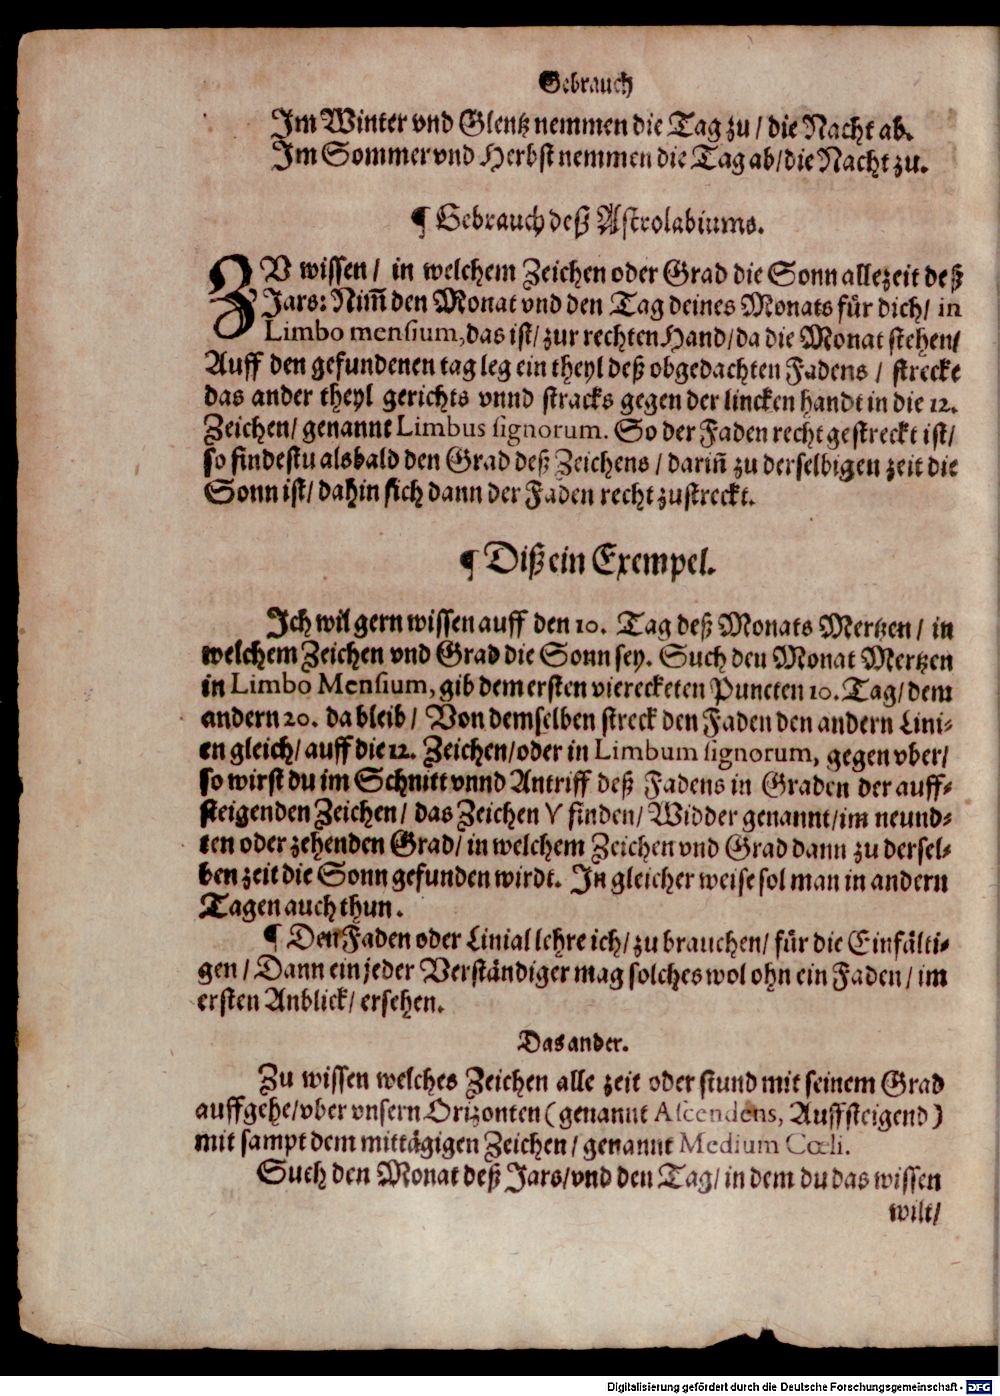 Gebrauch
Im Winter vnd Glentz nemmen die Tag zu / die Nacht ab.
Im Sommer vnd Herbst nemmen die Tag ab / die Nacht zu.
¶ Gebrauch deß Astrolabiums.
ZV wissen / in welchem Zeichen oder Grad die Sonn allezeit deß
Jars: Nim̄ den Monat vnd den Tag deines Monats für dich / in
Limbo mensium, das ist / zur rechten Hand / da die Monat stehen /
Auff den gefundenen tag leg ein theyl deß obgedachten Fadens / strecke
das ander theyl gerichts vnnd stracks gegen der lincken handt in die 12.
Zeichen / genannt Limbus signorum. So der Faden recht gestreckt ist /
so findestu alsbald den Grad deß Zeichens / darin̄ zu derselbigen zeit die
Sonn ist / dahin sich dann der Faden recht zustreckt.
¶ Diß ein Exempel.
Ich wil gern wissen auff den 10. Tag deß Monats Mertzen / in
welchem Zeichen vnd Grad die Sonn sey. Such den Monat Mertzen
in Limbo Mensium, gib dem ersten vierecketen Puncten 10. Tag / dem
andern 20. da bleib / Von demselben streck den Faden den andern Lini-
en gleich / auff die 12. Zeichen / oder in Limbum signorum, gegen vber /
so wirst du im Schnitt vnnd Antriff deß Fadens in Graden der auff-
steigenden Zeichen / das Zeichen ♈ finden / Widder genannt / im neund-
ten oder zehenden Grad / in welchem Zeichen vnd Grad dann zu dersel-
ben zeit die Sonn gefunden wirdt. In gleicher weise sol man in andern
Tagen auch thun.
¶ Den Faden oder Linial lehre ich / zu brauchen / für die Einfälti-
gen / Dann ein jeder Verständiger mag solches wol ohn ein Faden / im
ersten Anblick / ersehen.
Das ander.
Zu wissen welches Zeichen alle zeit oder stund mit seinem Grad
auffgehe / vber vnsern Orizonten (genannt Ascendens, Auffsteigend)
mit sampt dem mittägigen Zeichen / genannt Medium Cœli.
Such den Monat deß Jars / vnd den Tag / in dem du das wissen
wilt /
Digitalisierung gefördert durch die Deutsche Forschungsgemeinschaft - DFG